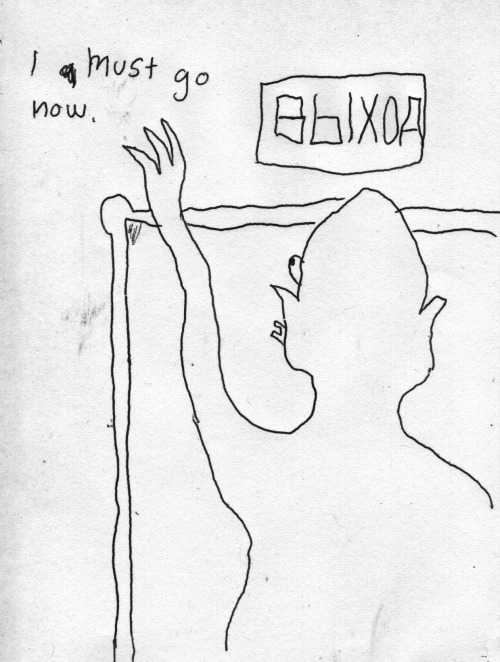 I must go
now.
ВЫХОД